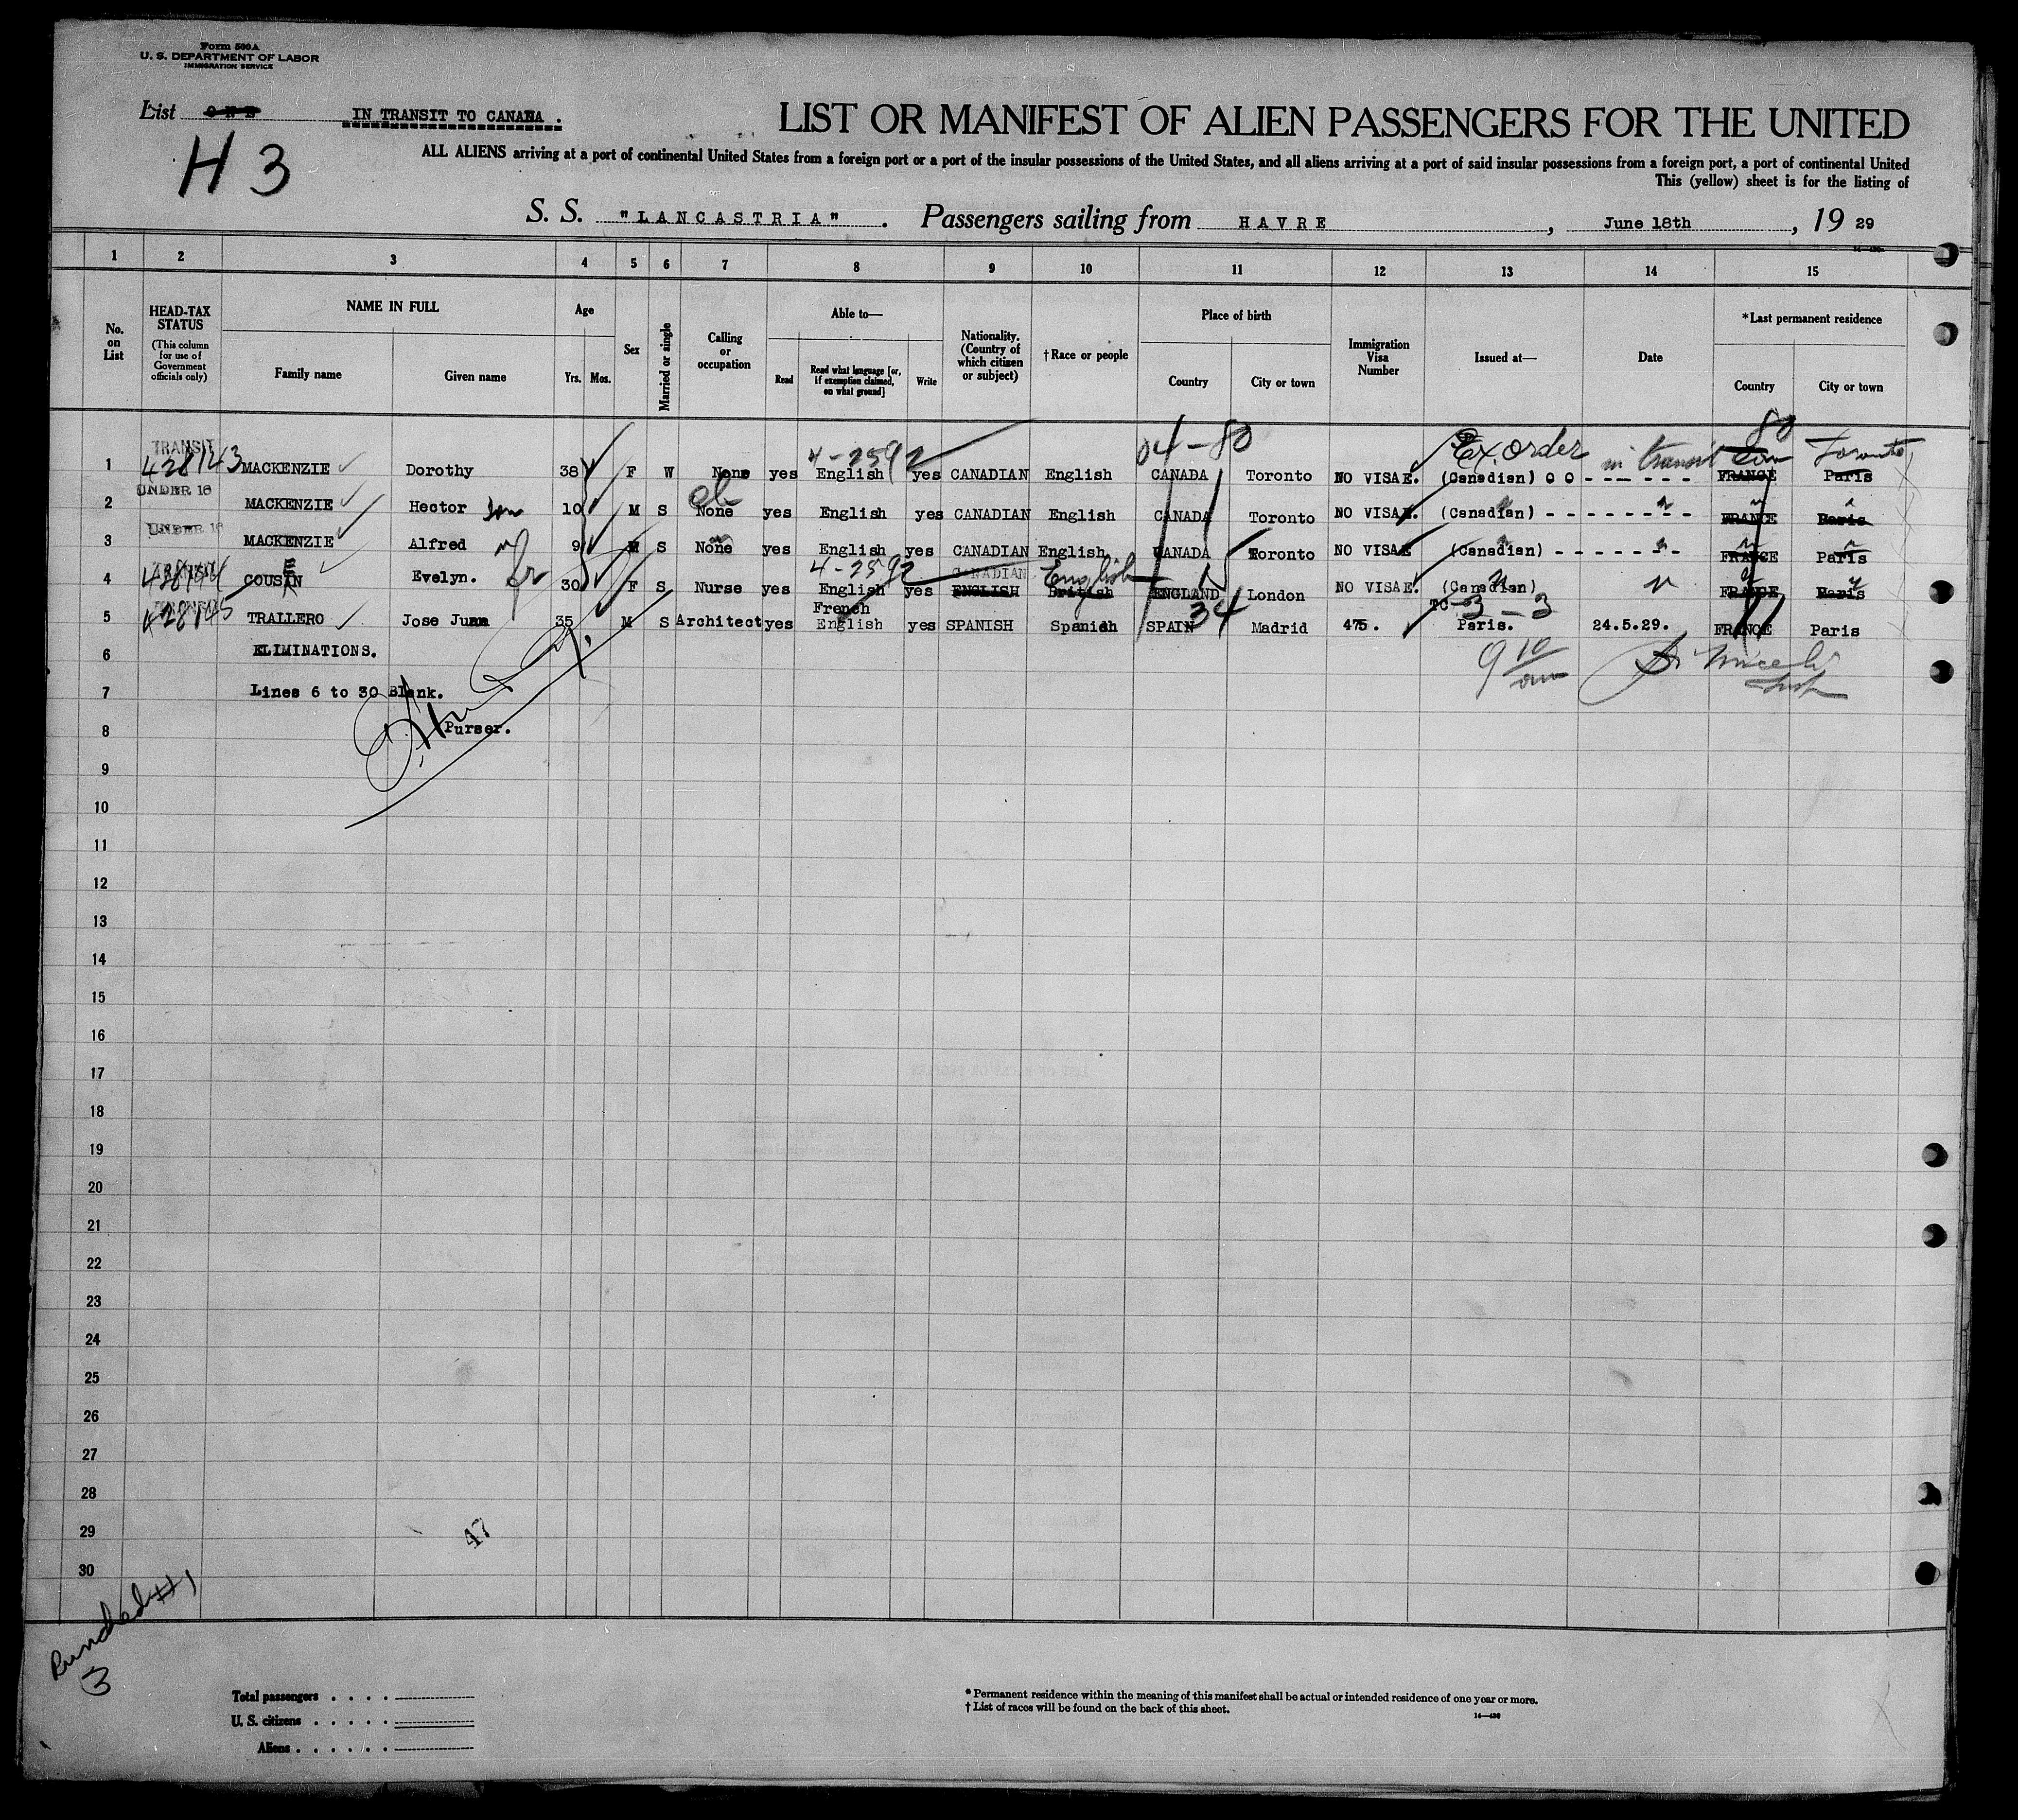 Form 500A
U. S. DEPARTMENT OF LABOR
IMMIGRATION SERVICE
List ONE IN TRANSIT TO CANADA .
H 3
LIST OR MANIFEST OF ALIEN PASSENGERS FOR THE UNITED
ALL ALIENS arriving at a port of continental United States from a foreign port or a port of the insular possessions of the United States, and all aliens arriving at a port of said insular possessions from a foreign port, a port of continental United
This (yellow) sheet is for the listing of
S. S. "LANCASTRIA" . Passengers sailing from HAVRE , June 18th , 19 29
1 2 3 4 5 6 7 8 9 10 11 12 13 14 15
No. on List
HEAD-TAX STATUS
(This column for use of Government officials only)
NAME IN FULL
Family name Given name
Age
Yrs. Mos.
Sex
Married or single
Calling or occupation
Able to—
Read
Read what language [or, if exemption claimed, on what ground]
Write
Nationality. (Country of which citizen or subject)
†Race or people
Place of birth
Country City or town
Immigration Visa Number
Issued at—
Date
*Last permanent residence
Country City or town
TRANSIT 4-2592 04-80 Ex. order in transit 80 Toronto
1 428143 MACKENZIE Dorothy 38 F W None yes English yes CANADIAN English CANADA Toronto NO VISAE. (Canadian) FRANCE Paris
UNDER 16
2 MACKENZIE Hector son 10 M S None yes English yes CANADIAN English CANADA Toronto NO VISAE. (Canadian) - - - - - - - - FRANCE Paris
UNDER 16
3 MACKENZIE Alfred 9 M S None yes English yes CANADIAN English CANADA Toronto NO VISAE (Canadian) - - - - - - - FRANCE Paris
4-2592 CANADIAN English
4 428144 COUSAN E Evelyn. 30 F S Nurse yes English yes ENGLISH British ENGLAND London NO VISAE. (Canadian) FRANCE Paris
TRANSIT French 34 TC-3-3
5 428145 TRALLERO Jose Juan 35 M S Architect yes English yes SPANISH Spanish SPAIN Madrid 475. Paris. 24.5.29. FRANCE Paris
6 ELIMINATIONS.
9 10 am
7 Lines 6 to 30 Blank.
8 Purser.
9
10
11
12
13
14
15
16
17
18
19
20
21
22
23
24
25
26
27
28
29 47
30
Punched #1
3
Total passengers . . . .
U. S. citizens . . . . .
Aliens . . . . . .
* Permanent residence within the meaning of this manifest shall be actual or intended residence of one year or more.
† List of races will be found on the back of this sheet.
14—430